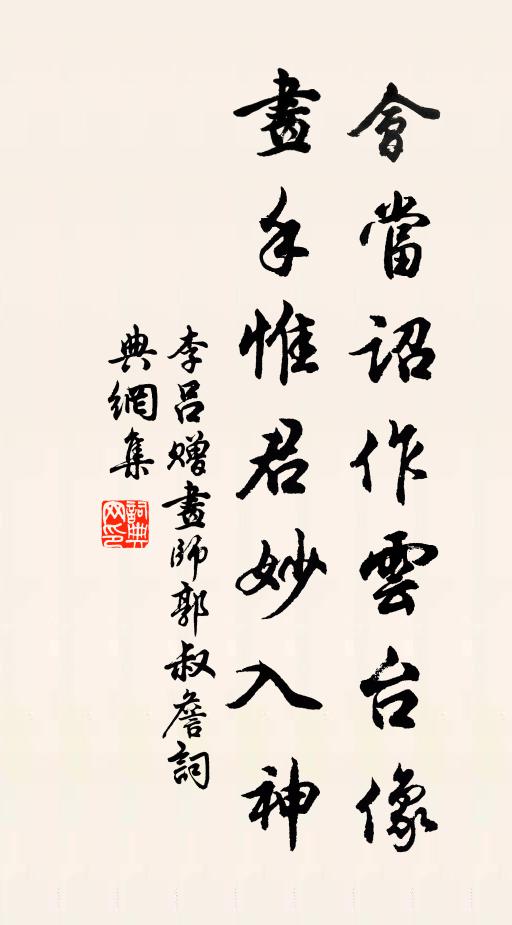 會當詔作雲台像
畫手惟君妙入神
李呂贈畫師郭叔詹詞
典網集
詞典
网印